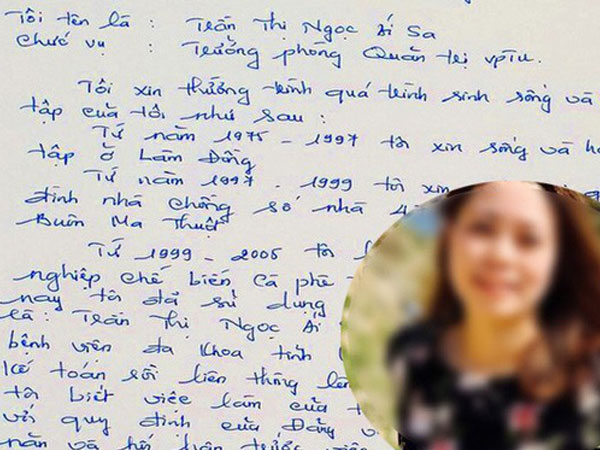 Tôi tên là : Trần Thị Ngọc Ái Sa
Chức vụ : Trưởng phòng Quản trị VPTU.
Tôi xin thường trình quá trình sinh sống và
tập của tôi như sau :
Từ năm 1975 - 1997 tôi xin sống và họ
tập ở Lâm Đồng
Từ năm 1997 - 1999 tôi xin
đình nhà chồng số nhà 4
Buôn Ma Thuột
Từ 1999 - 2005 tôi
nghiệp chế biến cà phê
nay tôi đã sử dụng
là : Trần Thị Ngọc Ái
bệnh viện đa khoa tỉnh
kế toán rồi liên thông lên
tôi biết việc làm của t
với quy định của Đảng v
năn và hối hận trước việc